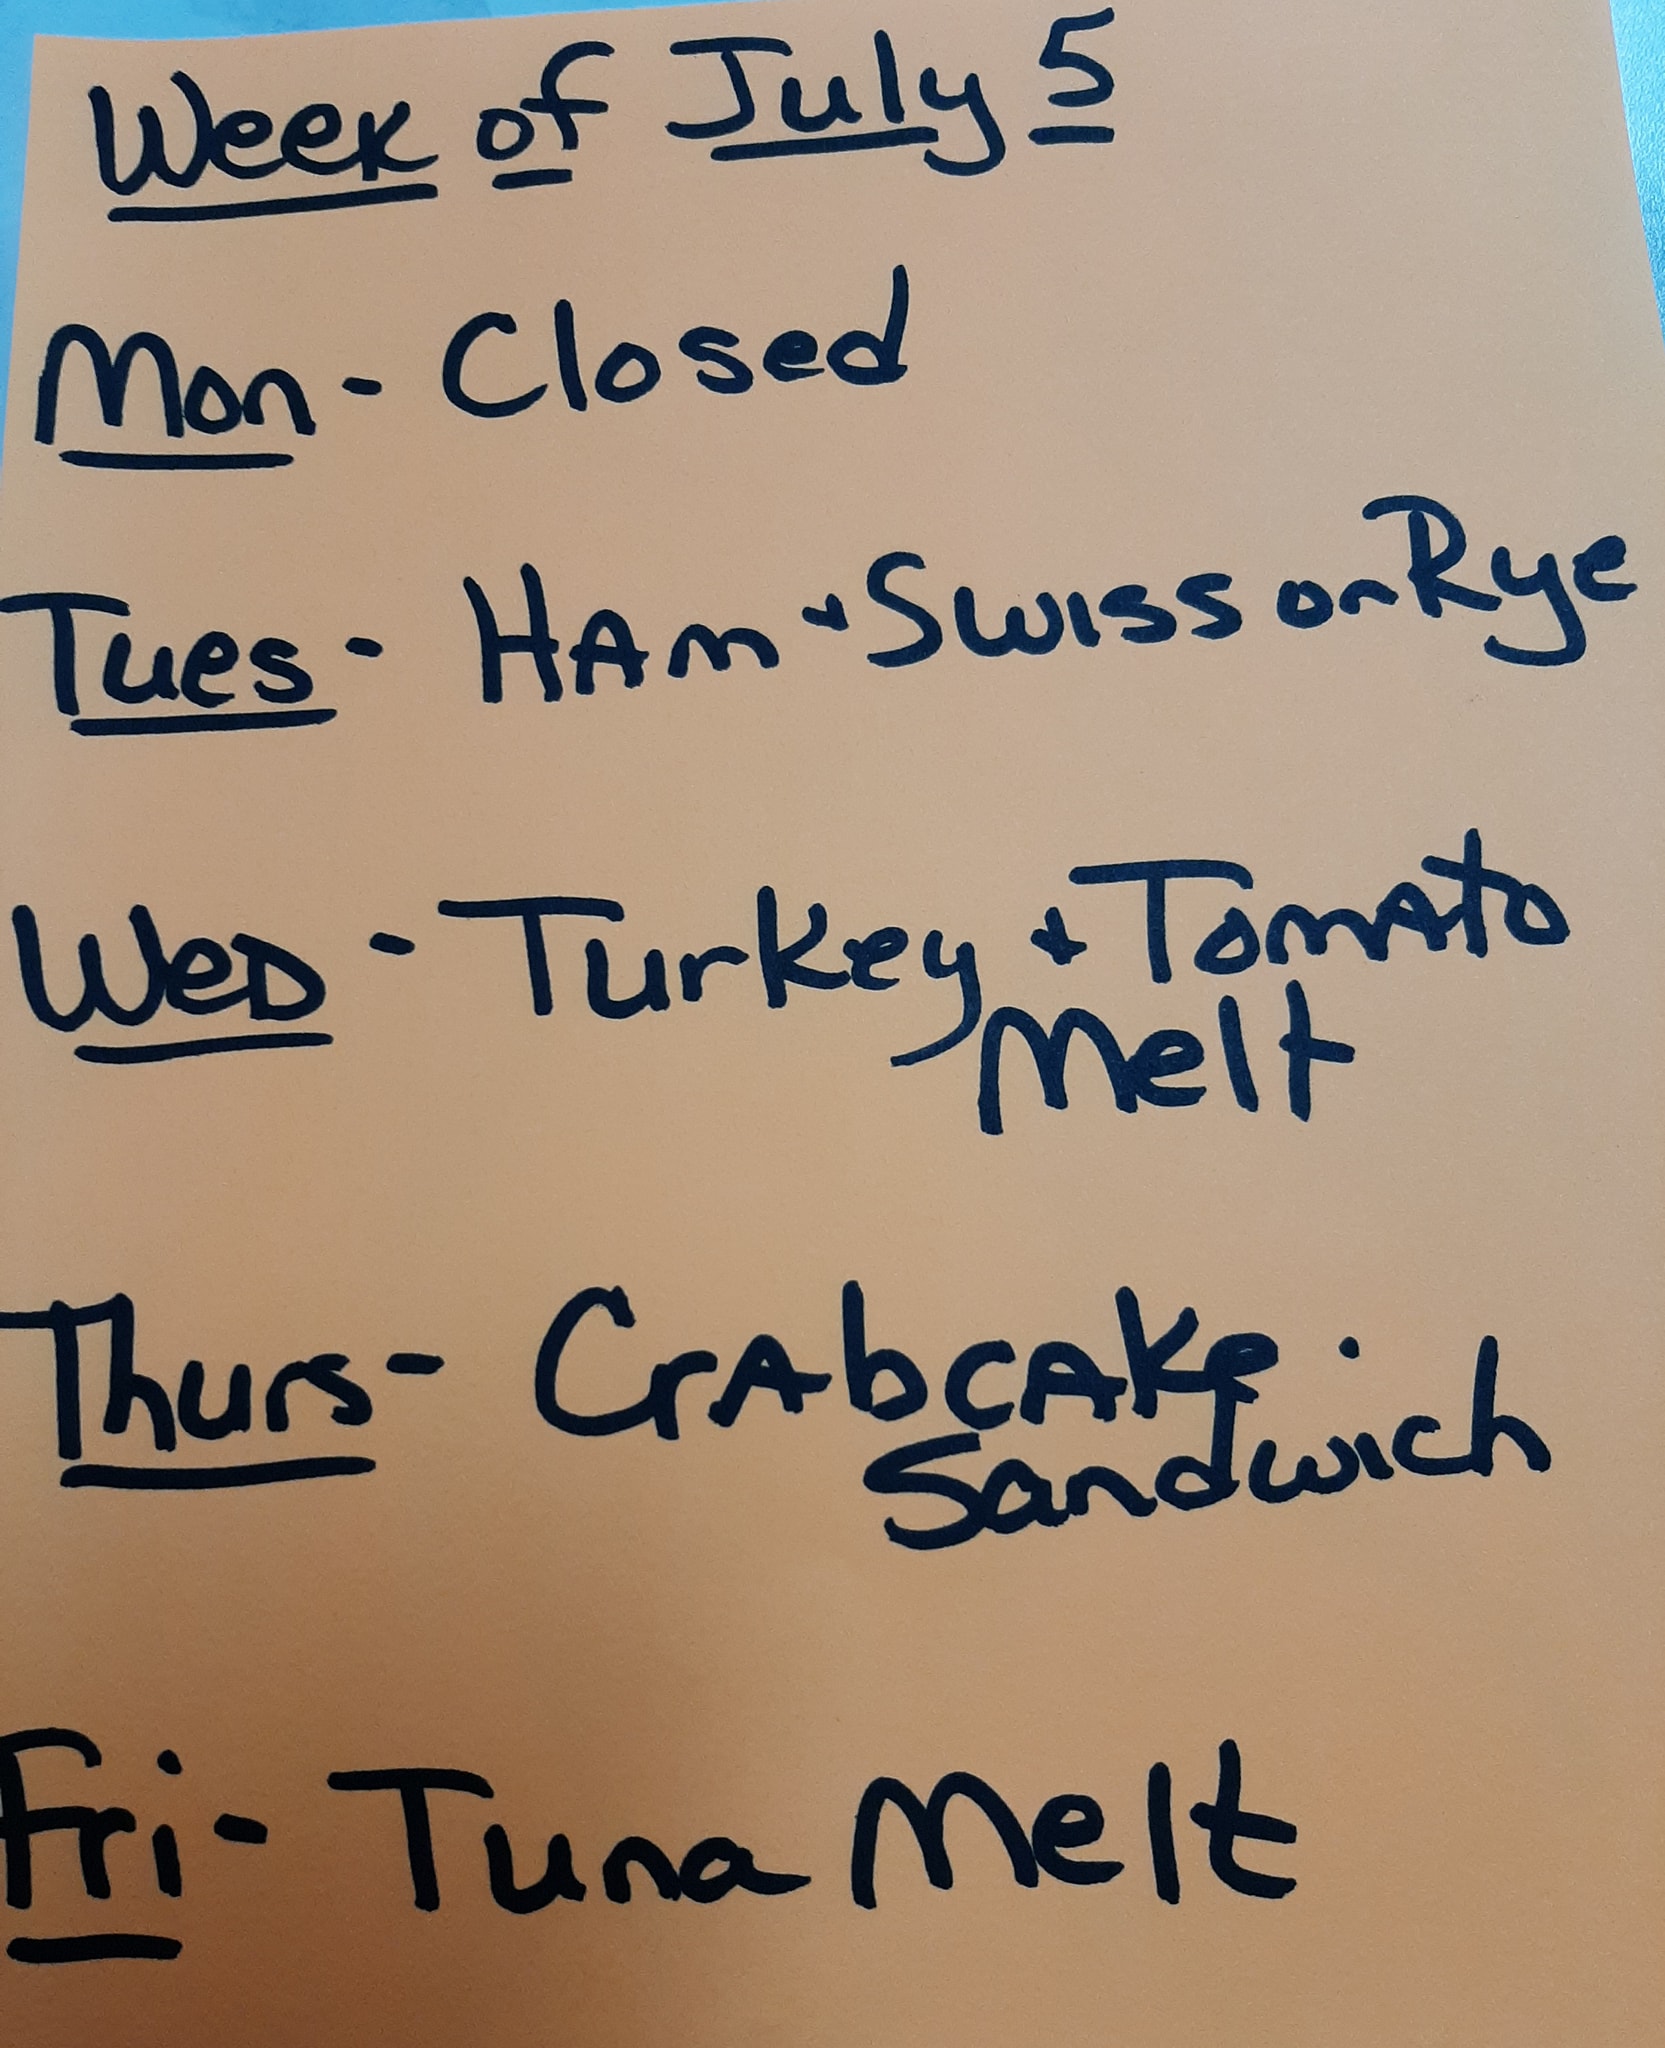 Week of July 5
Mon - Closed
Tues - HAm + Swiss on Rye
WeD - Turkey + TomAto
Melt
Thurs - CrAbcAke
Sandwich
Fri - Tuna Melt